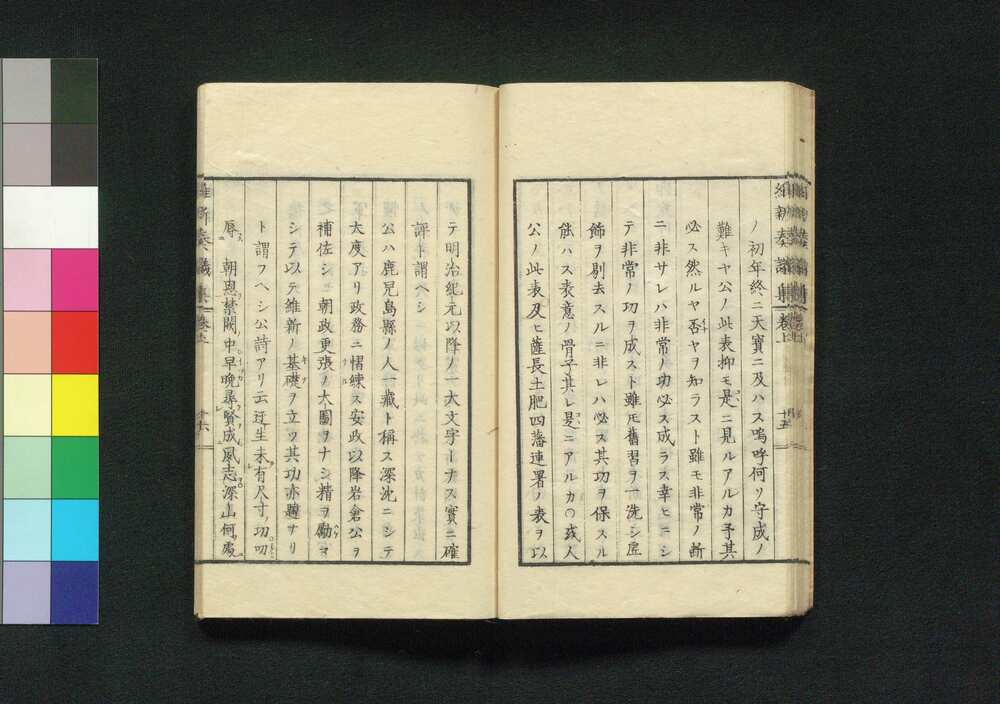 ノ初年終ニ天寳ニ及ハス嗚呼何ソ守成ノ
難キヤ公ノ此表抑モ是ニ見ルアルカ予其
必ス然ルヤ否ヤヲ知ラスト雖モ非常ノ断
ニ非サレハ非常ノ功必ス成ラス幸ヒニシ
テ非常ノ功ヲ成スト雖モ舊習ヲ一洗シ虛
飾ヲ剔去スルニ非レハ必ス其功ヲ保スル
能ハス表意ノ骨子其レ是ニアルカ○或人
公ノ此表及ヒ薩長土肥四藩連署ノ表ヲ以
テ明治紀元以降ノ一大文字トナス實ニ確
評ト謂ヘシ
公ハ鹿児島縣ノ人一藏ト稱ス深沈ニシテ
大度アリ政務ニ慴練ス安政以降岩倉公ヲ
補佐シ朝政更張ノ大圖ヲナシ精ヲ勵ヲ
シテ以テ維新ノ基礎ヲ立ツ其功亦趣ナリ
ト謂フヘシ公詩アリ云迂生未有尺寸功叨
辱朝恩禁闕中早晩尋賢成風志深山何處
維新奏議集 卷上 十五
維新奏議集 卷上 十六